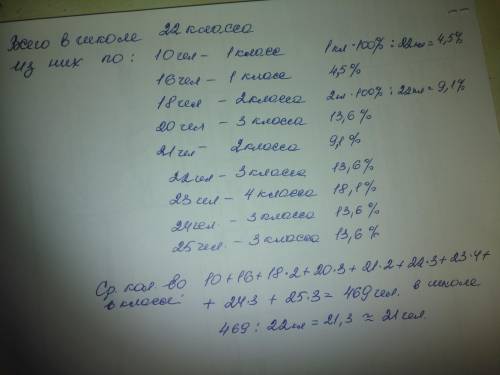 Всего в школе 22 класса
из них по: 10 чел – 1 класс 1 кл · 100% : 22 кл = 4,5%
16 чел – 1 класс 4,5%
18 чел – 2 класса 2 кл · 100% : 22 кл = 9,1%
20 чел – 3 класса 13,6%
21 чел – 2 класса 9,1%
22 чел – 3 класса 13,6%
23 чел – 4 класса 18,1%
24 чел. – 3 класса 13,6%
25 чел – 3 класса 13,6%
Ср. кол. во 10+16+18·2+20·3+21·2+22·3+23·4+
в классе: + 24·3 + 25·3 = 469 чел. в школе
469 : 22 кл = 21,3 ≈ 21 чел.